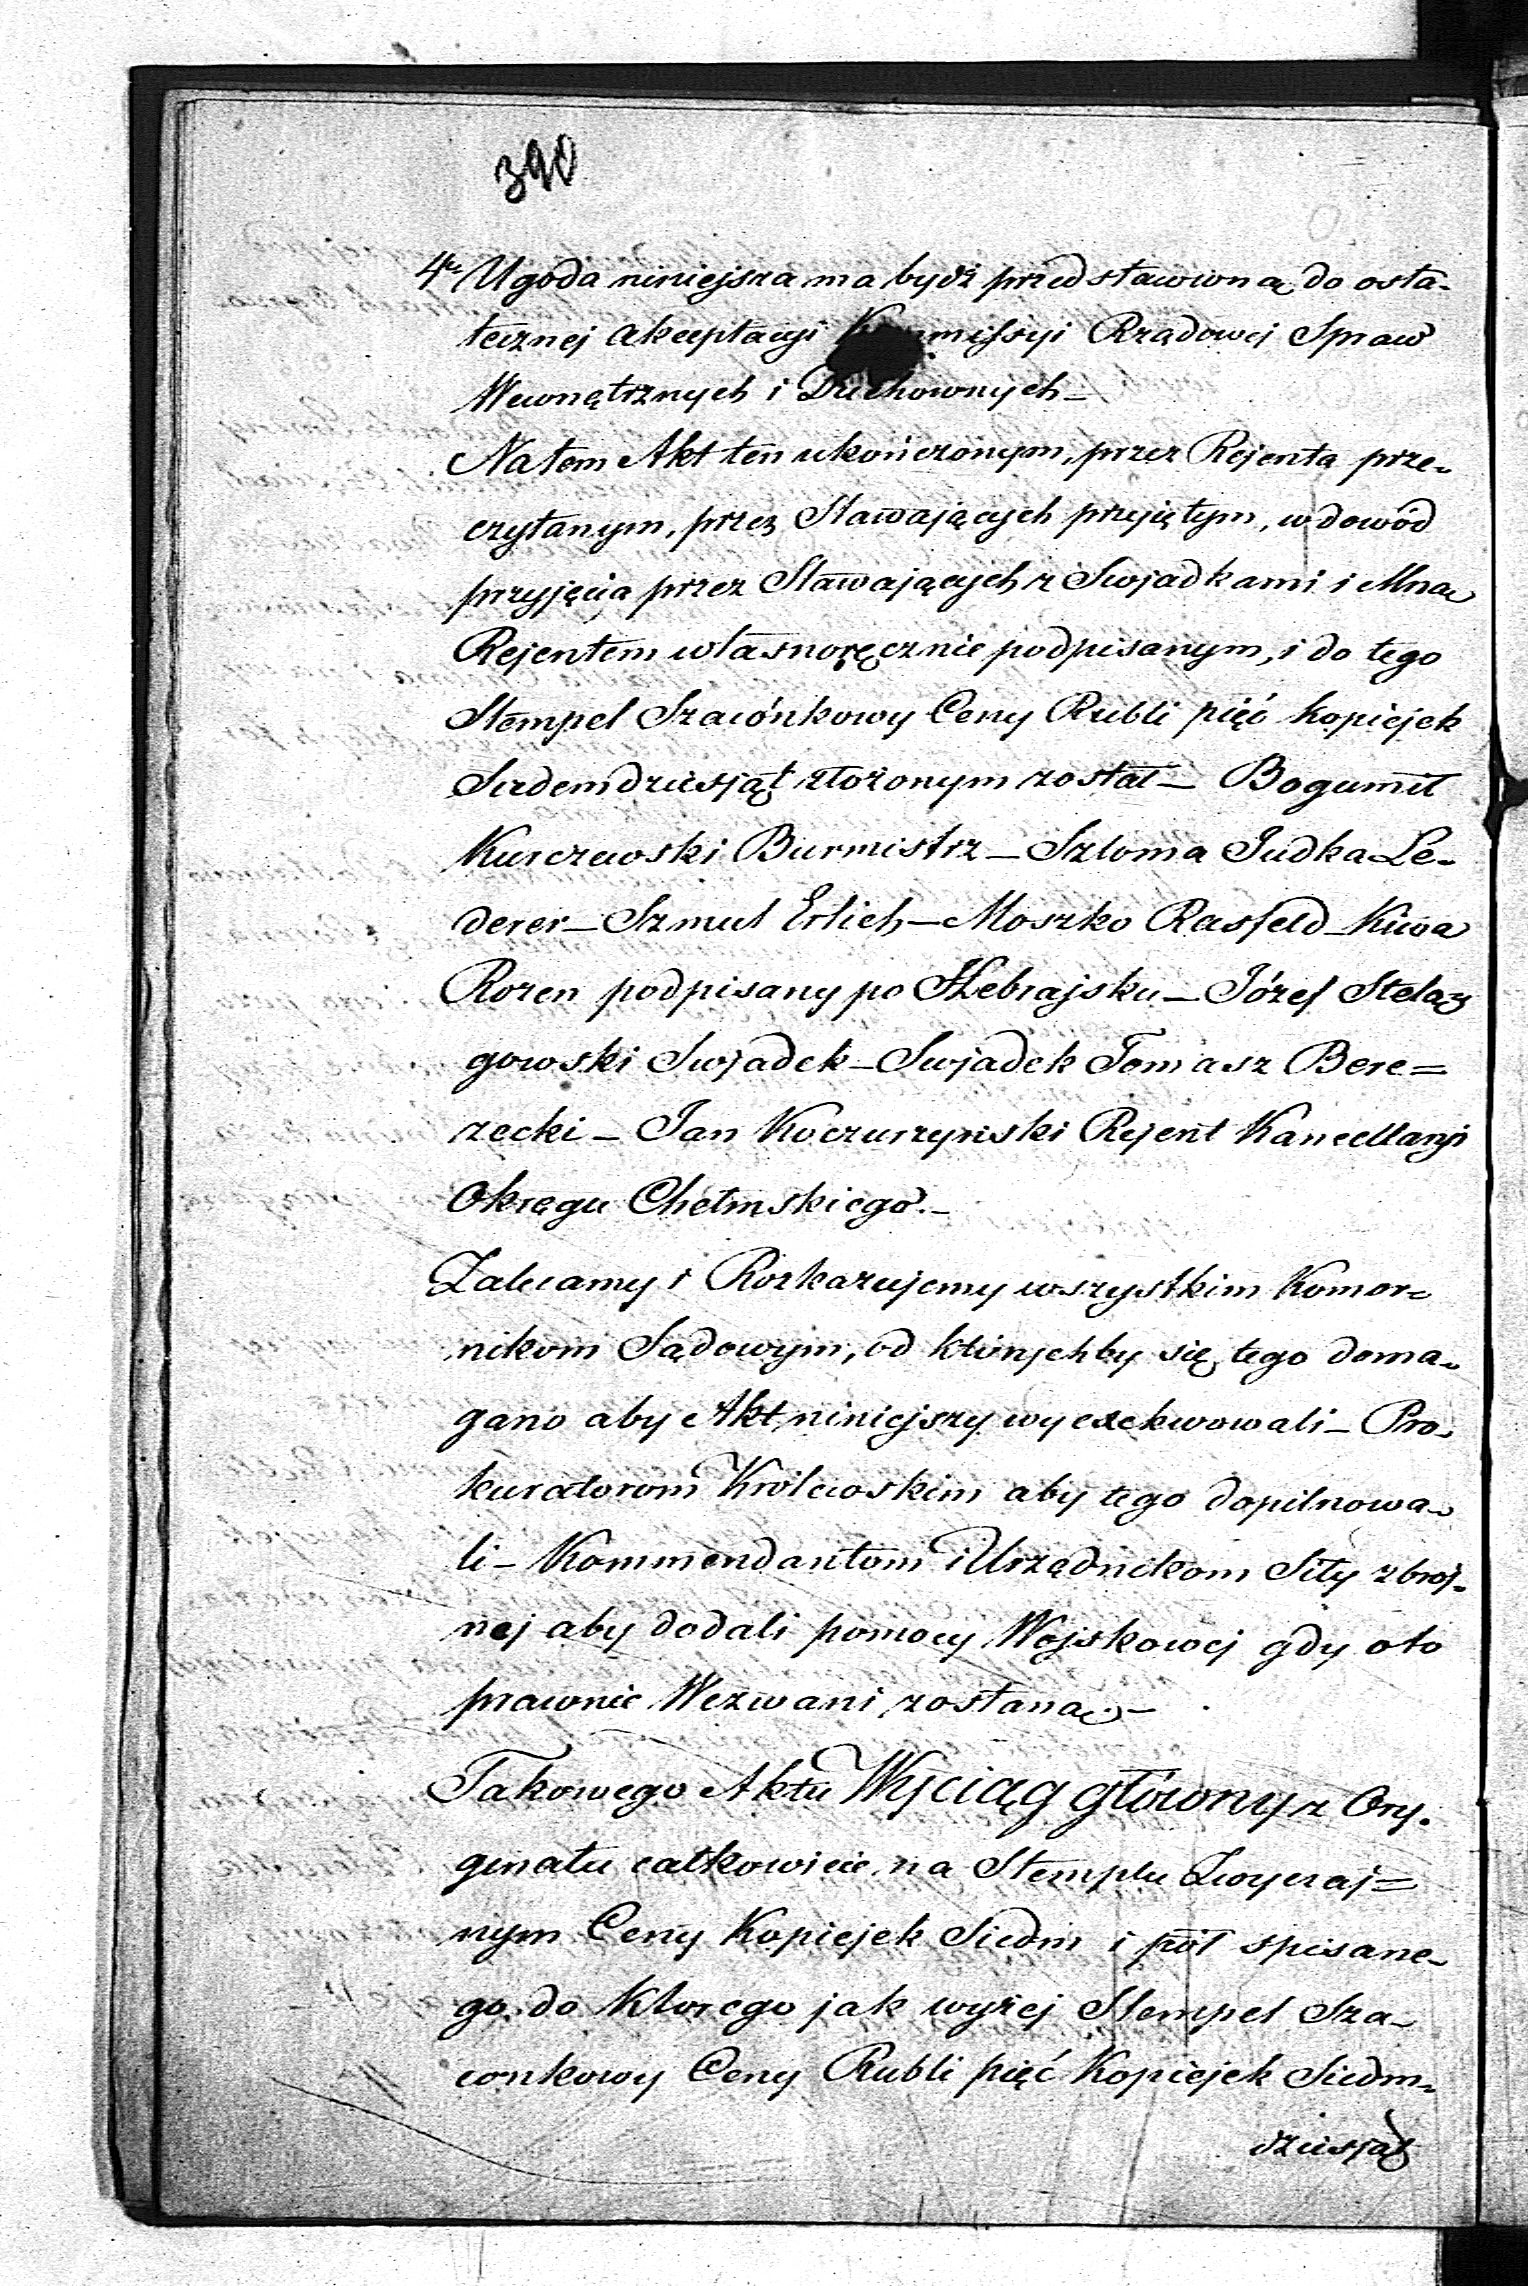 390
4te Ugoda niniejsza ma bydź przedstawioną do osta-
tecznej akceptacyi Kommissyi Rządowej Spraw
Wewnętrznych i Duchownych_
Na tem Akt ten ukończonym, przez Rejenta prze-
czytanym, przez Stawających przyiętym, w dowód
przyjęcia przez Stawających z Swjadkami i Mną
Rejentem własnoręcznie podpisanym, i do tego
Stempel Szacónkowy Ceny Rubli pięć kopiejek
Siedemdziesjąt złożonym został_ Bogumił
Kurczewski Burmistrz_ Szloma Judka Le-
derer_ Szmul Erlich_ Moszko Rasfeld_ Kiwa
Rozen podpisany po Hebrajsku_ Józef Stela
gowski Swjadek_ Swjadek Tomasz Bere=
zecki_ Jan Koczurzyński Rejent Kancellaryi
Okręgu Chełmskiego._
Zalecamy i Rozkazujemy wszystkim Komor-
nikom Sądowym, od którychby się tego doma-
gano aby Akt niniejszy wyexekwowali_ Pro-
kuratorom Królewskim aby tego dopilnowa-
li_ Kommendantom i Urzędnikom Siły zbroj-
nej aby dodali pomocy Wojskowej gdy oto
prawnie Wezwani zostaną._
Takowego Aktu Wyciąg główny z Ory-
ginału całkowicie na Stemplu Zwyczaj=
nym Ceny Kopiejek Siedm i pół spisane-
go do którego jak wyżej Stempel Sza-
conkowy Ceny Rubli pięć Kopiejek Siedm-
dziesjąt